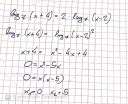 log₇(x+4) = 2 · log₇(x-2)
log₇(x+4) = log₇(x-2)²
x+4 = x²-4x+4
0 = x²-5x
0 = x(x-5)
x₁=0 x₂=5